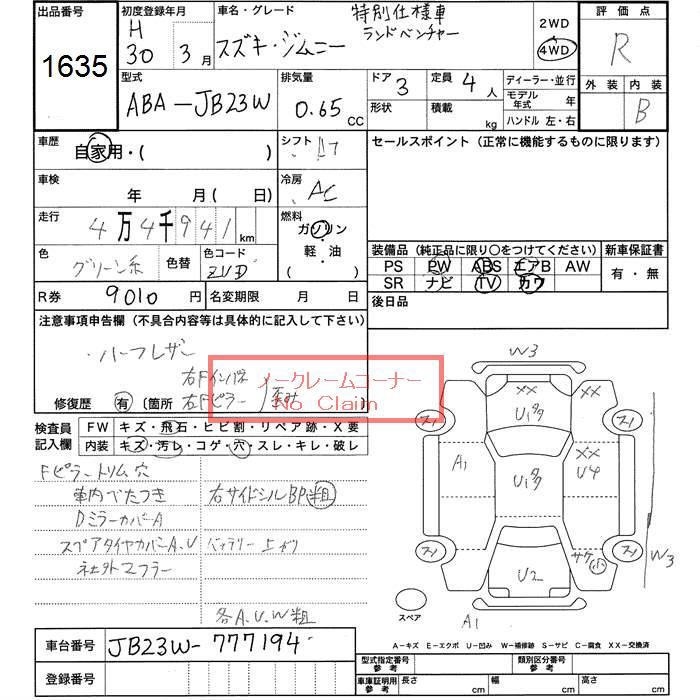 出品番号 初度登録年月 車名・グレード 特別仕様車 ランドベンチャー 2WD 4WD 評価点
1635 H 30 3月 スズキ・ジムニー R
型式 排気量 ドア 3 定員 4人 ディーラー・並行 外装 内装
ABA-JB23W 0.65 CC 形状 積載 kg モデル年式 年 B
ハンドル 左・右
車歴 自家用・( ) シフト AT セールスポイント(正常に機能するものに限ります)
車検 年 月( 日) 冷房 AC
走行 4万4千941km 燃料 ガソリン・軽・油・( )
色 グリーン系 色替 色コード ZVD
装備品(純正品に限り○をつけてください) 新車保証書
PS PW ABS エアB AW 有・無
SR ナビ TV カワ
R券 9010円 名変期限 月 日 後日品
注意事項申告欄(不具合内容等は具体的に記入して下さい)
ハーフレザー
右Fインパネ
右Fピラー
ノークレームコーナー
No Claim
修復歴 有(箇所
検査員記入欄 FW キズ・飛石・ヒビ割・リペア跡・X要
内装 キズ・汚レ・コゲ・穴・スレ・キレ・破レ
Fピラートリム穴
車内べたつき 右サイドシルBP粗
DミラーカバーA
スペアタイヤカバーA.U バッテリー上がり
社外マフラー
各A.U.W粗
W3
XX XX
U1多
スリ スリ
A1 U1多 XX U4
スリ スリ
サケ 小 W3
U2
スペア A1
A-キズ E-エクボ U-凹み W-補修跡 S-サビ C-腐食 XX-交換済
車台番号 JB23W-777194
登録番号
型式指定番号 参考 類別区分番号 参考
車庫証明用 参考 長さ cm 幅 cm 高さ cm